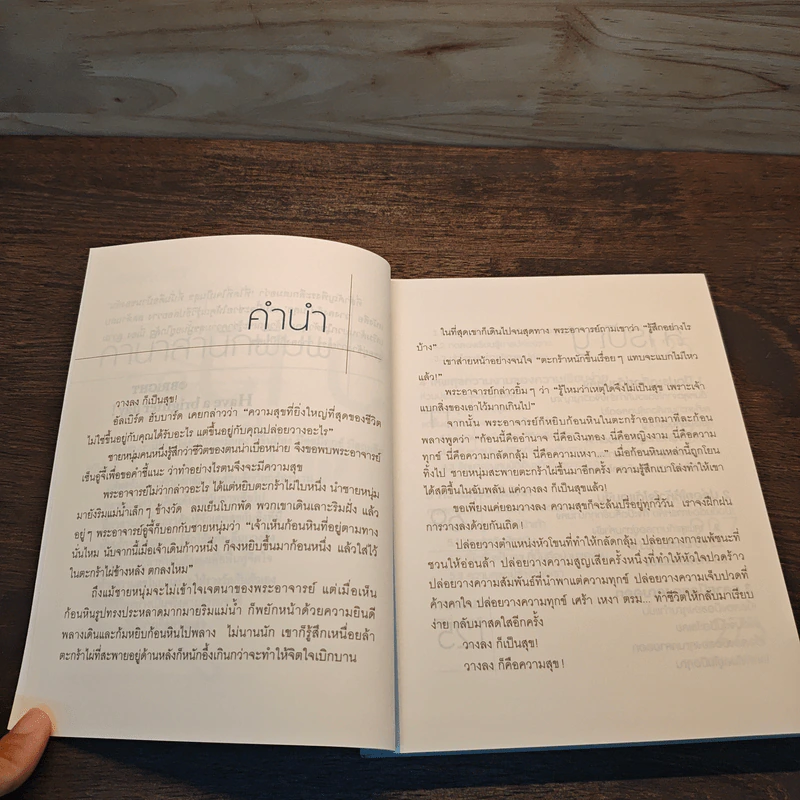 คำนำ
วางลง ก็เป็นสุข!
อัลเบิร์ต ฮับบาร์ด เคยกล่าวว่า “ความสุขที่ยิ่งใหญ่ที่สุดของชีวิต
ไม่ใช่ขึ้นอยู่กับคุณได้รับอะไร แต่ขึ้นอยู่กับคุณปล่อยวางอะไร”
ชายหนุ่มคนหนึ่งรู้สึกว่าชีวิตของตนน่าเบื่อหน่าย จึงขอพบพระอาจารย์
เซ็นอู๋จี้เพื่อขอคำชี้แนะ ว่าทำอย่างไรตนจึงจะมีความสุข
พระอาจารย์ไม่ว่ากล่าวอะไร ได้แต่หยิบตะกร้าไผ่ใบหนึ่ง นำชายหนุ่ม
มายังริมแม่น้ำเล็กๆ ข้างวัด ลมเย็นโบกพัด พวกเขาเดินเลาะริมฝั่ง แล้ว
อยู่ๆ พระอาจารย์อู๋จี้ก็บอกกับชายหนุ่มว่า “เจ้าเห็นก้อนหินที่อยู่ตามทาง
นั่นไหม นับจากนี้เมื่อเจ้าเดินก้าวหนึ่ง ก็จงหยิบขึ้นมาก้อนหนึ่ง แล้วใส่ไว้
ในตะกร้าไผ่ข้างหลัง ตกลงไหม”
ถึงแม้ชายหนุ่มจะไม่เข้าใจเจตนาของพระอาจารย์ แต่เมื่อเห็น
ก้อนหินรูปทรงประหลาดมากมายริมแม่น้ำ ก็พยักหน้าด้วยความยินดี
พลางเดินและก้มหยิบก้อนหินไปพลาง ไม่นานนัก เขาก็รู้สึกเหนื่อยล้า
ตะกร้าไผ่ที่สะพายอยู่ด้านหลังก็หนักอึ้งเกินกว่าจะทำให้จิตใจเบิกบาน
ในที่สุดเขาก็เดินไปจนสุดทาง พระอาจารย์ถามเขาว่า “รู้สึกอย่างไร
บ้าง”
เขาส่ายหน้าอย่างจนใจ “ตะกร้าหนักขึ้นเรื่อยๆ แทบจะแบกไม่ไหว
แล้ว!”
พระอาจารย์กล่าวยิ้มๆ ว่า “รู้ไหมว่าเหตุใดจึงไม่เป็นสุข เพราะเจ้า
แบกสิ่งของเอาไว้มากเกินไป”
จากนั้น พระอาจารย์ก็หยิบก้อนหินในตะกร้าออกมาทีละก้อน
พลางพูดว่า “ก้อนนี้คืออำนาจ นี่คือเงินทอง นี่คือหญิงงาม นี่คือความ
ทุกข์ นี่คือความกลัดกลุ้ม นี่คือความเหงา...” เมื่อก้อนหินเหล่านี้ถูกโยน
ทิ้งไป ชายหนุ่มสะพายตะกร้าไผ่ขึ้นมาอีกครั้ง ความรู้สึกเบาโล่งทำให้เขา
ได้สติขึ้นในฉับพลัน แค่วางลง ก็เป็นสุขแล้ว!
ขอเพียงแค่ยอมวางลง ความสุขก็จะล้นปรี่อยู่ทุกวี่วัน เราจงฝึกฝน
การวางลงด้วยกันเถิด!
ปล่อยวางตำแหน่งหัวโขนที่ทำให้กลัดกลุ้ม ปล่อยวางการแพ้ชนะที่
ชวนให้อ่อนล้า ปล่อยวางความสูญเสียครั้งหนึ่งที่ทำให้หัวใจปวดร้าว
ปล่อยวางความสัมพันธ์ที่นำพาแต่ความทุกข์ ปล่อยวางความเจ็บปวดที่
ค้างคาใจ ปล่อยวางความทุกข์ เศร้า เหงา ตรม... ทำชีวิตให้กลับมาเรียบ
ง่าย กลับมาสดใสอีกครั้ง
วางลง ก็เป็นสุข!
วางลง ก็คือความสุข!